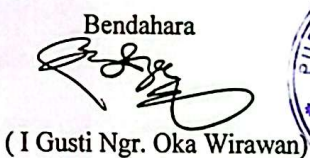 Bendahara
( I Gusti Ngr. Oka Wirawan)